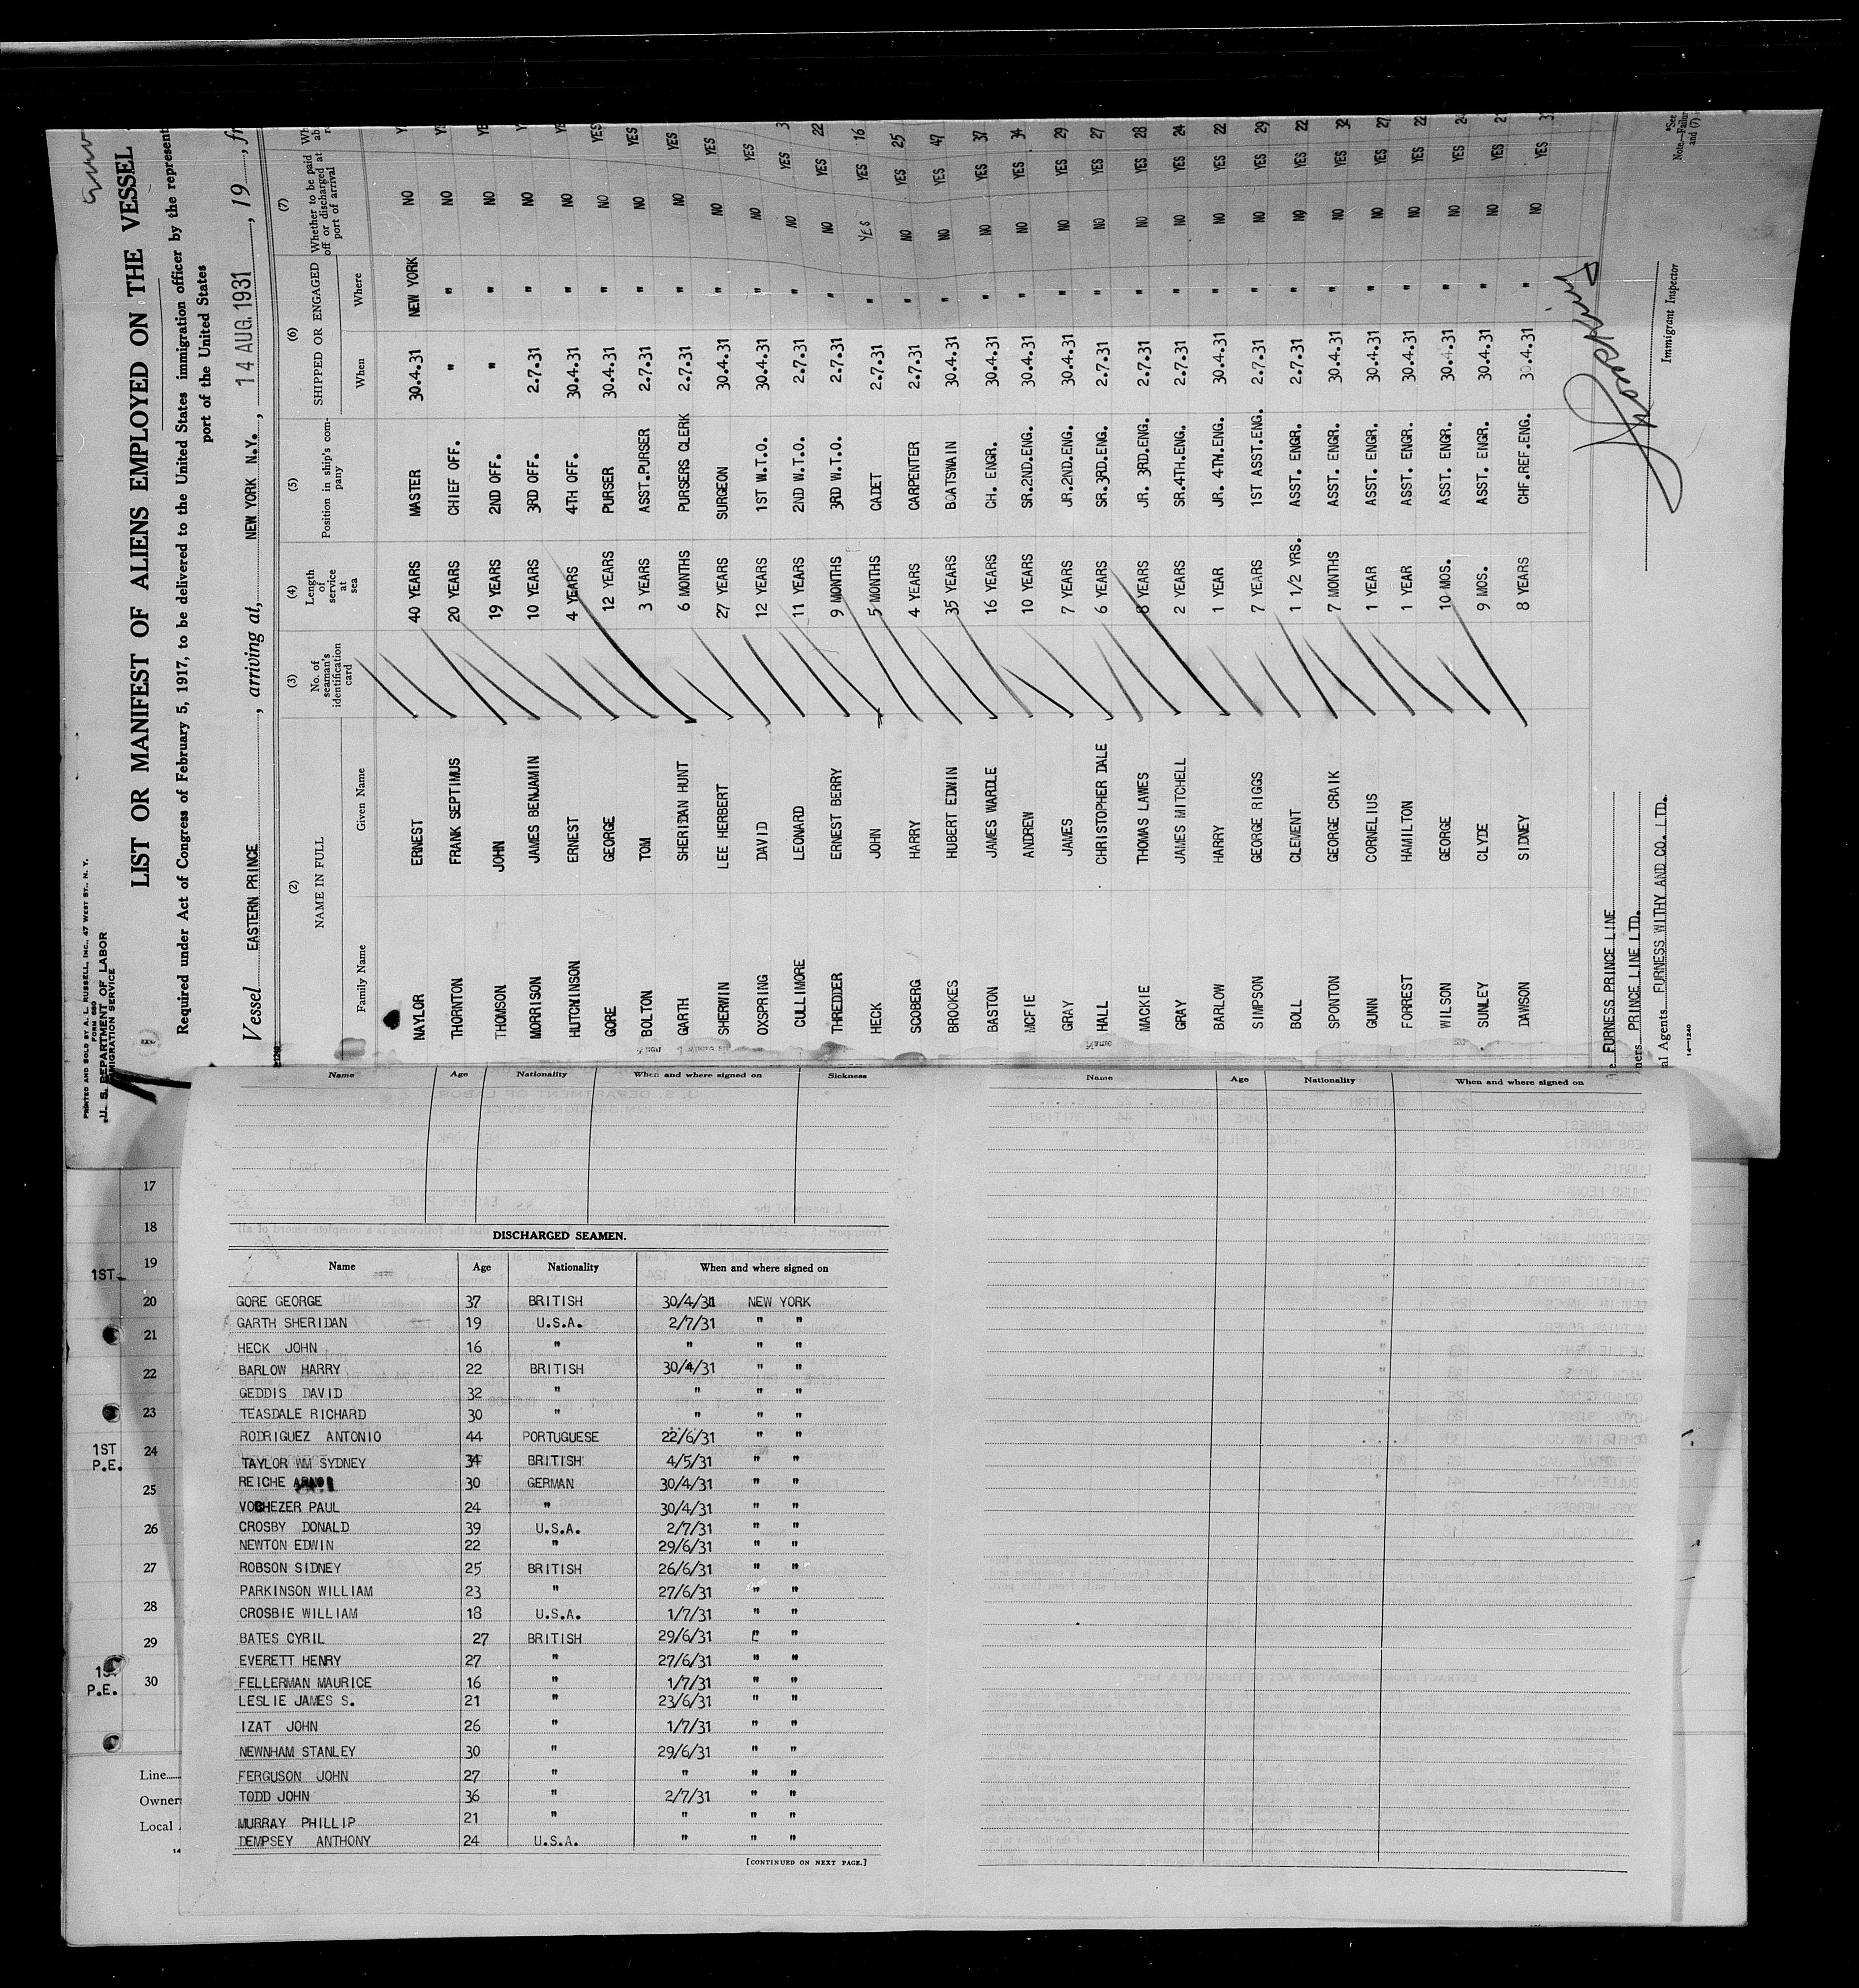 PRINTED AND SOLD BY A. L. RUSSELL, INC., 47 WEST ST., N. Y.
FORM 680
U. S. DEPARTMENT OF LABOR
IMMIGRATION SERVICE
LIST OR MANIFEST OF ALIENS EMPLOYED ON THE VESSEL
Required under Act of Congress of February 5, 1917, to be delivered to the United States immigration officer by the represent
port of the United States
Vessel EASTERN PRINCE, arriving at, NEW YORK N.Y., 14 AUG. 1931, 19, fr
(2) (3) (4) (5) (6) (7)
NAME IN FULL
Family Name Given Name
No. of seaman's identification card
Length of service at sea
Position in ship's company
SHIPPED OR ENGAGED
When Where
Whether to be paid off or discharged at port of arrival
NAYLOR ERNEST 40 YEARS MASTER 30.4.31 NEW YORK NO
THORNTON FRANK SEPTIMUS 20 YEARS CHIEF OFF. " " NO
THOMSON JOHN 19 YEARS 2ND OFF. " " NO
MORRISON JAMES BENJAMIN 10 YEARS 3RD OFF. 2.7.31 " NO
HUTCHINSON ERNEST 4 YEARS 4TH OFF. 30.4.31 " NO
GORE GEORGE 12 YEARS PURSER 30.4.31 " NO YES
BOLTON TOM 3 YEARS ASST.PURSER 2.7.31 " NO YES
GARTH SHERIDAN HUNT 6 MONTHS PURSERS CLERK 2.7.31 " NO YES
SHERWIN LEE HERBERT 27 YEARS SURGEON 30.4.31 " NO YES
OXSPRING DAVID 12 YEARS 1ST W.T.O. 30.4.31 " NO YES
CULLIMORE LEONARD 11 YEARS 2ND W.T.O. 2.7.31 " NO YES
THREDDER ERNEST BERRY 9 MONTHS 3RD W.T.O. 2.7.31 " NO YES 22
HECK JOHN 5 MONTHS CADET 2.7.31 " YES YES 16
SCOBERG HARRY 4 YEARS CARPENTER 2.7.31 " NO YES 25
BROOKES HUBERT EDWIN 35 YEARS BOATSWAIN 30.4.31 " NO YES 47
BASTON JAMES WARDLE 16 YEARS CH. ENGR. 30.4.31 " NO YES 37
MCFIE ANDREW 10 YEARS SR.2ND.ENG. 30.4.31 " NO YES 34
GRAY JAMES 7 YEARS JR.2ND.ENG. 30.4.31 " NO YES 29
HALL CHRISTOPHER DALE 6 YEARS SR.3RD.ENG. 2.7.31 " NO YES 27
MACKIE THOMAS LAWES 8 YEARS JR. 3RD.ENG. 2.7.31 " NO YES 28
GRAY JAMES MITCHELL 2 YEARS SR.4TH.ENG. 2.7.31 " NO YES 24
BARLOW HARRY 1 YEAR JR. 4TH.ENG. 30.4.31 " NO YES 22
SIMPSON GEORGE RIGGS 7 YEARS 1ST ASST.ENG. 2.7.31 " NO YES 29
BOLL CLEMENT 1 1/2 YRS. ASST. ENGR. 2.7.31 " NO YES 22
SPONTON GEORGE CRAIK 7 MONTHS ASST. ENGR. 30.4.31 " NO YES 32
GUNN CORNELIUS 1 YEAR ASST. ENGR. 30.4.31 " NO YES 27
FORREST HAMILTON 1 YEAR ASST. ENGR. 30.4.31 " NO YES 22
WILSON GEORGE 10 MOS. ASST. ENGR. 30.4.31 " NO YES
SUNLEY CLYDE 9 MOS. ASST. ENGR. 30.4.31 " NO YES
DAWSON SIDNEY 8 YEARS CHF.REF.ENG. 30.4.31 " NO YES
FURNESS PRINCE LINE
ners PRINCE LINE LTD.
al Agents FURNESS WITHY AND CO. LTD.
14—1240
Immigrant Inspector
*See
Note—Failur
and (7)
Name Age Nationality When and where signed on Sickness
DISCHARGED SEAMEN.
Name Age Nationality When and where signed on
GORE GEORGE 37 BRITISH 30/4/31 NEW YORK
GARTH SHERIDAN 19 U.S.A. 2/7/31 " "
HECK JOHN 16 " " " "
BARLOW HARRY 22 BRITISH 30/4/31 " "
GEDDIS DAVID 32 " " " "
TEASDALE RICHARD 30 " " " "
RODRIGUEZ ANTONIO 44 PORTUGUESE 22/6/31 " "
TAYLOR WM SYDNEY 34 BRITISH 4/5/31 " "
REICHE 30 GERMAN 30/4/31 " "
PAUL 24 " 30/4/31 " "
CROSBY DONALD 39 U.S.A. 2/7/31 " "
NEWTON EDWIN 22 " 29/6/31 " "
ROBSON SIDNEY 25 BRITISH 26/6/31 " "
PARKINSON WILLIAM 23 " 27/6/31 " "
CROSBIE WILLIAM 18 U.S.A. 1/7/31 " "
BATES CYRIL 27 BRITISH 29/6/31 "
EVERETT HENRY 27 " 27/6/31 " "
FELLERMAN MAURICE 16 " 1/7/31 " "
LESLIE JAMES S. 21 " 23/6/31 " "
IZAT JOHN 26 " 1/7/31 " "
NEWNHAM STANLEY 30 " 29/6/31 " "
FERGUSON JOHN 27 " " " "
TODD JOHN 36 " 2/7/31 " "
MURRAY PHILLIP 21 " " " "
DEMPSEY ANTHONY 24 U.S.A. " " "
[CONTINUED ON NEXT PAGE.]
Name Age Nationality When and where signed on
17
18
19
1ST
20
21
22
23
24
1ST
P.E.
25
26
27
28
29
30
P.E.
Line
Owner
Local
14